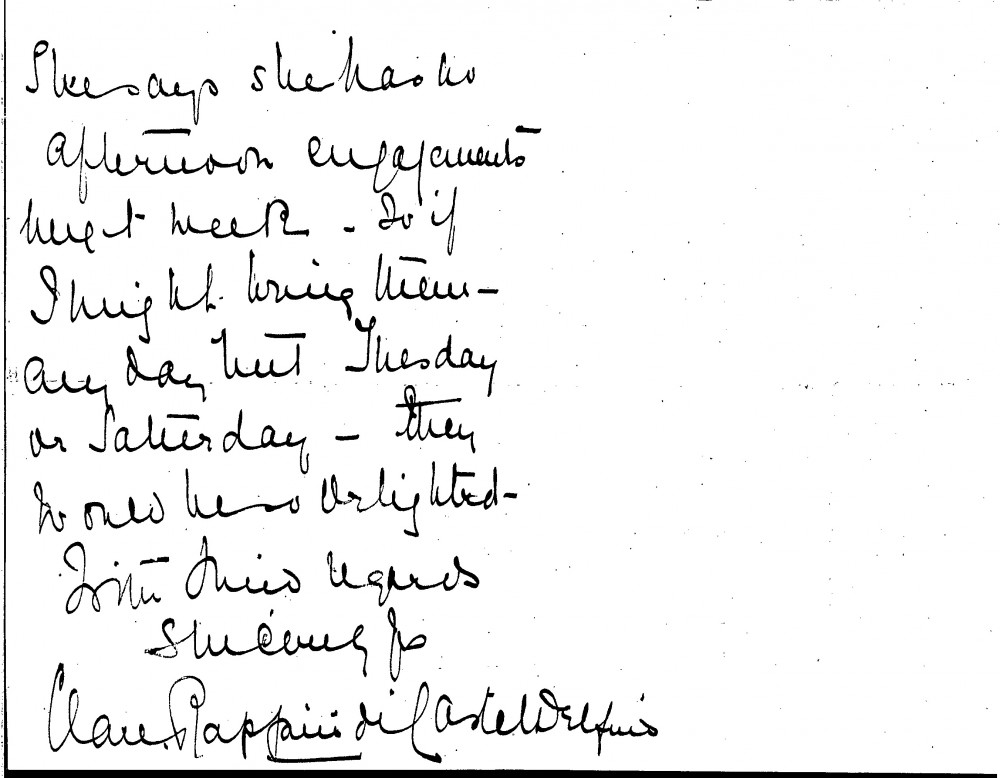 She says she has no
afternoon engagements
next week - So if
I might bring them -
any day but Tuesday
or Saturday - they
would be so delighted -
With kind regards
Sincerely Yrs
Clare Rappini di Castel Delfino